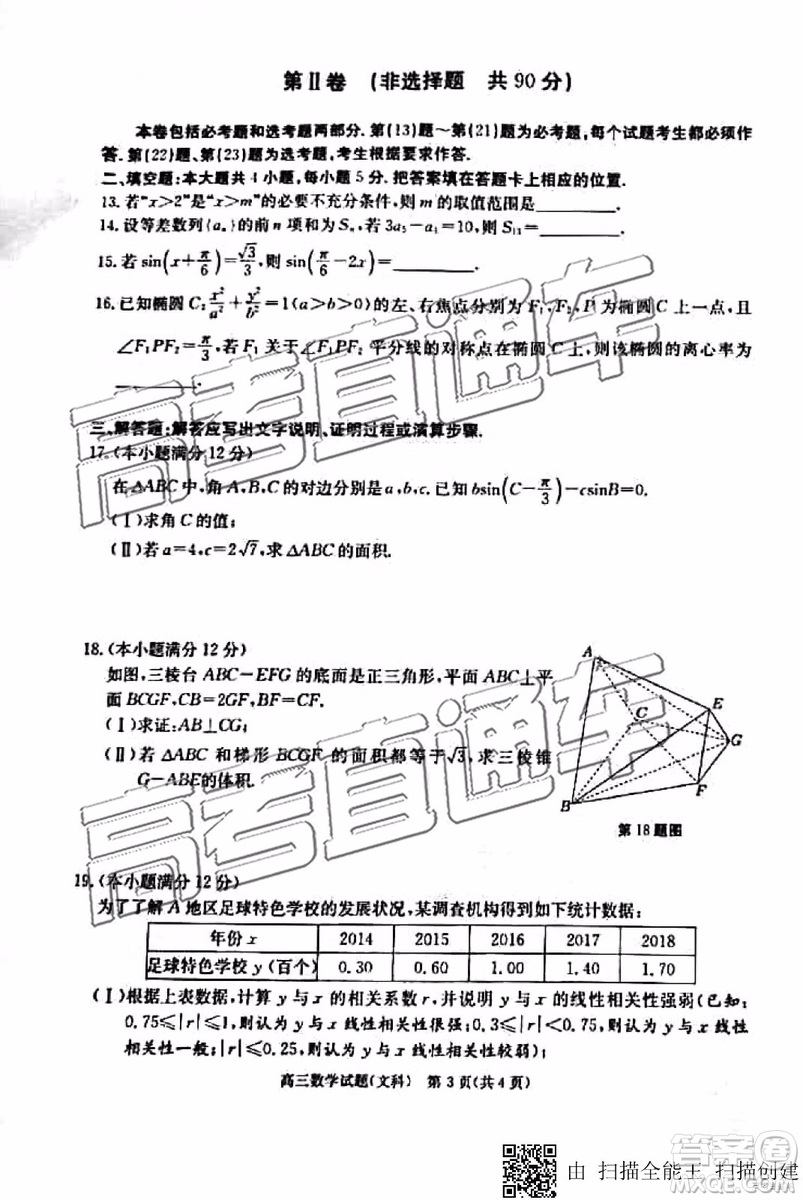 第Ⅱ卷 (非选择题 共90分)
本卷包括必考题和选考题两部分.第(13)题～第(21)题为必考题,每个试题考生都必须作
答.第(22)题、第(23)题为选考题,考生根据要求作答.
二、填空题:本大题共4小题,每小题5分.把答案填在答题卡上相应的位置.
13.若“x>2”是“x>m”的必要不充分条件,则m的取值范围是________.
14.设等差数列{aₙ}的前n项和为Sₙ,若3a₅-a₁=10,则S₁₃=________.
15.若sin(x+π/6)=√3/3,则sin(π/6-2x)=________.
16.已知椭圆C:x²/a²+y²/b²=1(a>b>0)的左、右焦点分别为F₁,F₂,P为椭圆C上一点,且
∠F₁PF₂=π/3,若F₁关于∠F₁PF₂平分线的对称点在椭圆C上,则该椭圆的离心率为
________.
三、解答题:解答应写出文字说明、证明过程或演算步骤.
17.(本小题满分12分)
在△ABC中,角A,B,C的对边分别是a,b,c.已知bsin(C-π/3)-csinB=0.
(Ⅰ)求角C的值;
(Ⅱ)若a=4,c=2√7,求△ABC的面积.
18.(本小题满分12分)
如图,三棱台ABC-EFG的底面是正三角形,平面ABC⊥平
面BCGF,CB=2GF,BF=CF.
(Ⅰ)求证:AB⊥CG;
(Ⅱ)若△ABC和梯形BCGF的面积都等于√3,求三棱锥
G-ABE的体积.
A
E
C
G
F
B
第18题图
19.(本小题满分12分)
为了了解A地区足球特色学校的发展状况,某调查机构得到如下统计数据:
年份x 2014 2015 2016 2017 2018
足球特色学校y(百个) 0.30 0.60 1.00 1.40 1.70
(Ⅰ)根据上表数据,计算y与x的相关系数r,并说明y与x的线性相关性强弱(已知:
0.75≤|r|≤1,则认为y与x线性相关性很强;0.3≤|r|<0.75,则认为y与x线性
相关性一般;|r|≤0.25,则认为y与x线性相关性较弱);
高三数学试题(文科) 第3页(共4页)
高考直通车
高考直通车
答案圈
MXQE.COM
由 扫描全能王 扫描创建